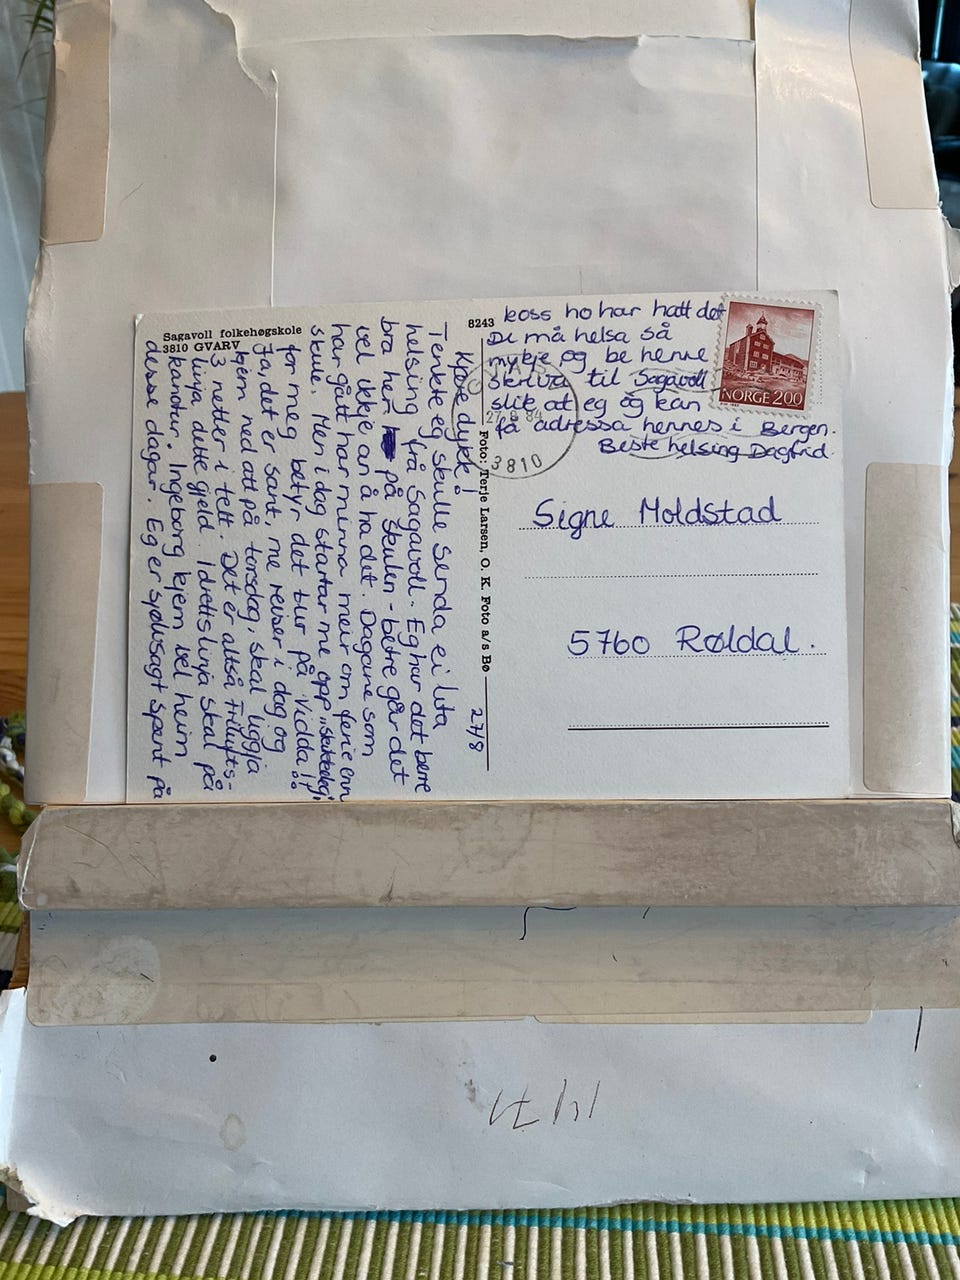 Sagavoll folkehøgskole
3810 GVARV
27/8
Kjære dykk!
Tenkte eg skulle senda ei lita
helsing frå Sagavoll. Eg har det bere
bra her på skulen - betre går det
vel ikkje an å ha det. Dagane som
har gått har minna meir om ferie enn
skule. Men i dag startar me opp
for meg betyr det tur på Vidda!!
Ja, det er sant, me reiser i dag og
kjem ned att på torsdag, skal liggja
3 netter i telt. Det er altså frilufts-
linja dette gjeld. Idrettslinja skal på
kanotur. Ingeborg kjem vel heim
desse dagar. Eg er sjølvsagt spent på
koss ho har hatt det
De må helsa så
mykje og be henne
skriva til Sagavoll
slik at eg òg kan
få adressa hennes i Bergen.
Beste helsing Dagfrid.
8243
Foto: Terje Larsen, O. K. Foto a/s Bø
NORGE 200
27.8.84
3810
Signe Moldstad
5760 Røldal.